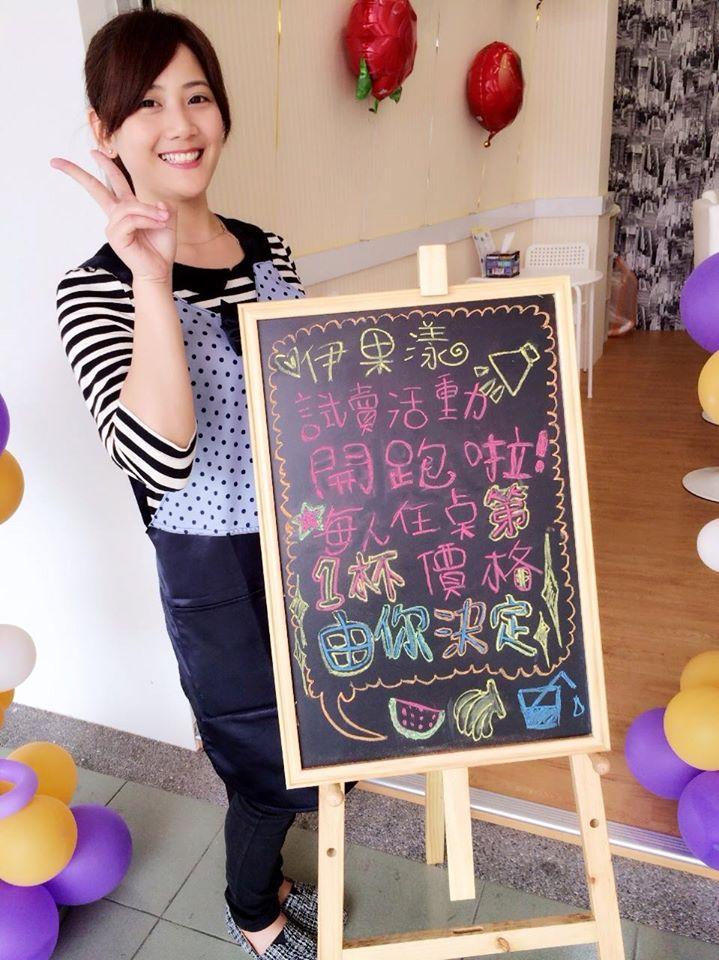 伊果漾
試賣活動
開跑啦!
每人任桌第
1杯價格
由你決定